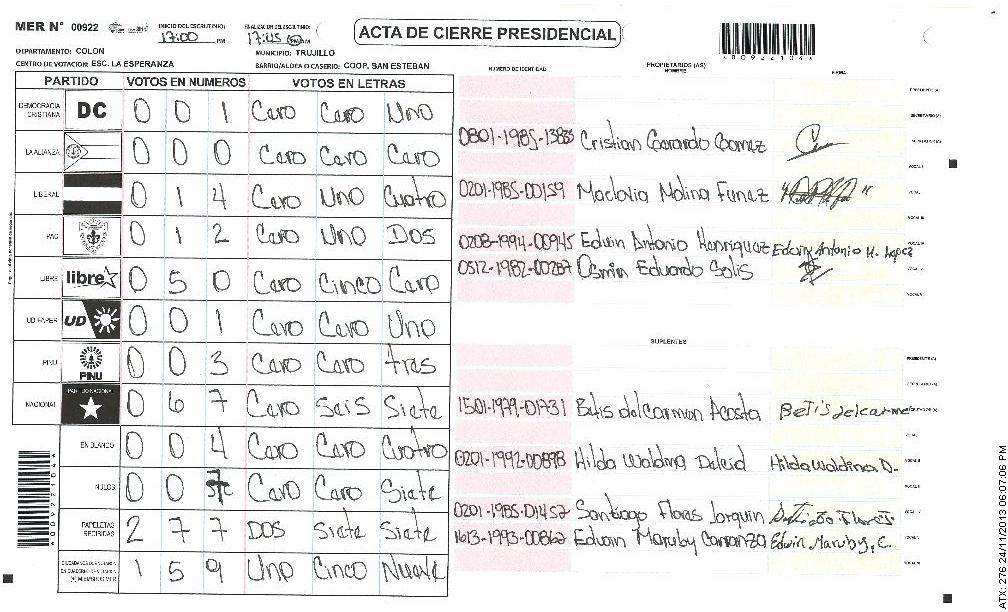 MER N° 00922 INICIO DEL ESCRUTINIO: 17:00 PM FINALIZACION DEL ESCRUTINIO: 17:45 PM ACTA DE CIERRE PRESIDENCIAL
*00922104*
DEPARTAMENTO: COLON MUNICIPIO: TRUJILLO
CENTRO DE VOTACION: ESC. LA ESPERANZA BARRIO/ALDEA O CASERIO: COOP. SAN ESTEBAN
PARTIDO VOTOS EN NUMEROS VOTOS EN LETRAS
DEMOCRACIA CRISTIANA DC 0 0 1 Cero Cero Uno
LA ALIANZA 0 0 0 Cero Cero Cero
LIBERAL 0 1 4 Cero Uno Cuatro
PAC 0 1 2 Cero Uno Dos
LIBRE libre 0 5 0 Cero Cinco Cero
UD FAPER UD 0 0 1 Cero Cero Uno
PINU PINU 0 0 3 Cero Cero tres
NACIONAL PARTIDO NACIONAL 0 6 7 Cero Seis Siete
EN BLANCO 0 0 4 Cero Cero Cuatro
NULOS 0 0 7 Cero Cero Siete
PAPELETAS RECIBIDAS 2 7 7 DOS Siete Siete
(+) MIEMBROS MER 1 5 9 Uno Cinco Nueve
NUMERO DE IDENTIDAD PROPIETARIOS (AS) NOMBRE FIRMA
PRESIDENTE (A)
SECRETARIO (A)
0801-1985-13835 Cristian Gerardo Gomez
VOCAL I
0201-1985-00159 Maclovia Molina Funez
0208-1994-00945 Edwin Antonio Henriquez Edwin Antonio H. Lopez
0512-1982-00287 Osmin Eduardo Solis
SUPLENTES
PRESIDENTE (A)
SECRETARIO (A)
1501-1979-01731 Betis del carmen Acosta Betis del carme
0201-1992-00898 Hilda Waldina Hilda Waldina D.
0201-1985-01457 Santiago Flores Jorquin
1613-1993-00862 Edwin Maruby Carranza Edwin Maruby, C.
*00922104*
ATX: 276 24/11/2013 06:07:06 PM